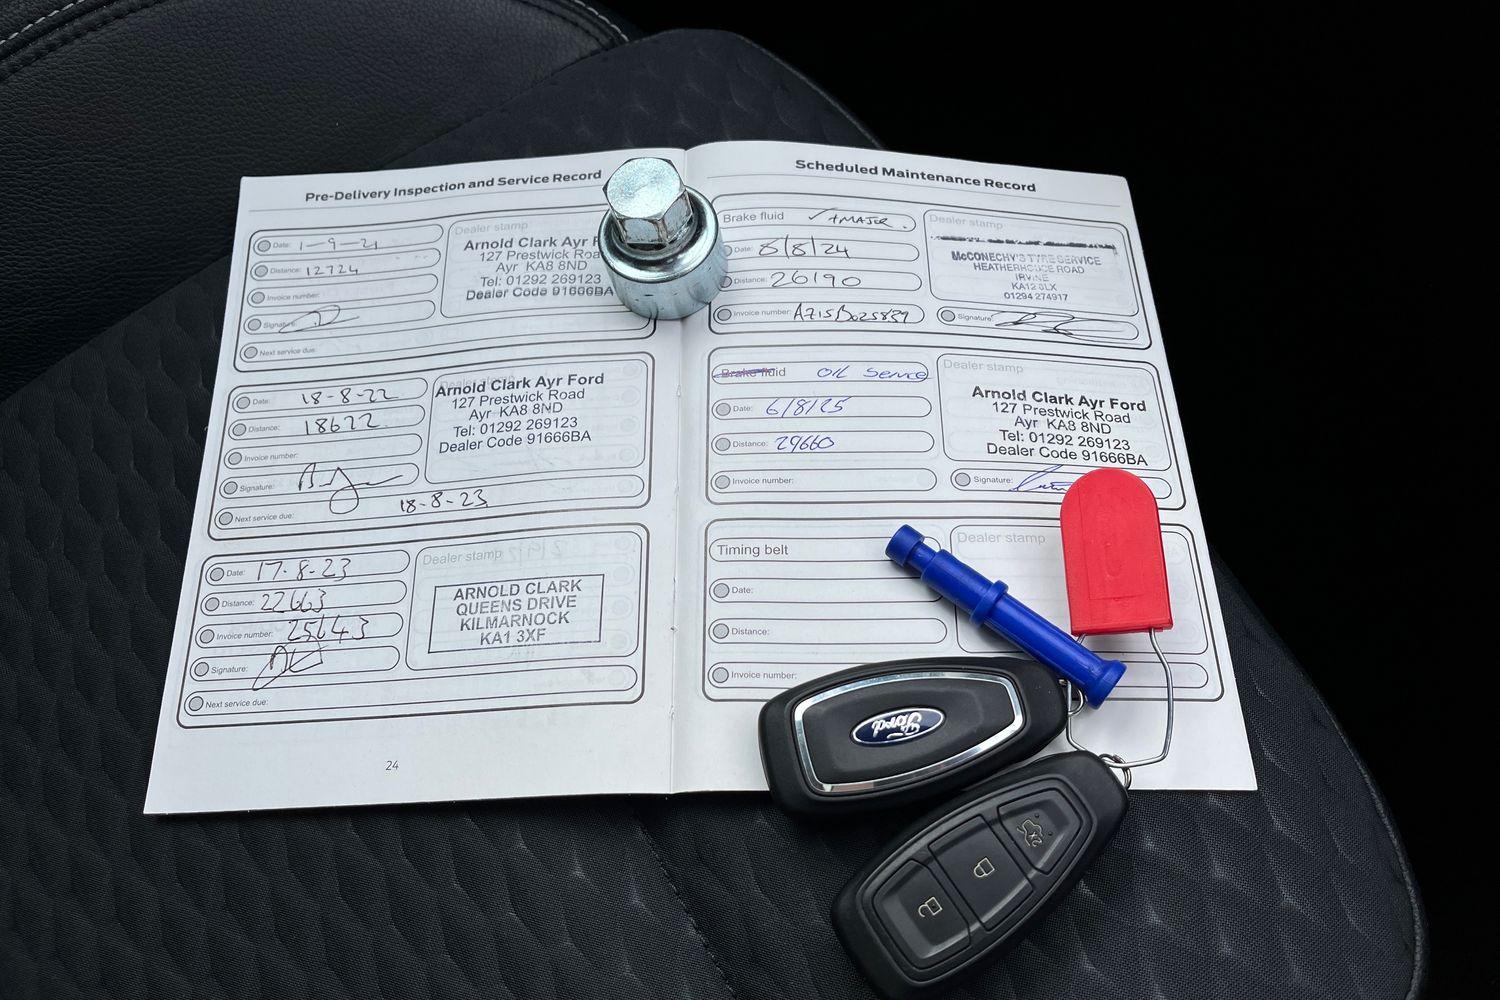 Pre-Delivery Inspection and Service Record
Date: 1-9-21
Distance: 12724
Invoice number:
Signature:
Next service due:
Dealer stamp
Arnold Clark Ayr F
127 Prestwick Roa
Ayr KA8 8ND
Tel: 01292 269123
Dealer Code 91666BA
Date: 18-8-22
Distance: 18622
Invoice number:
Signature:
Next service due: 18-8-23
Dealer stamp
Arnold Clark Ayr Ford
127 Prestwick Road
Ayr KA8 8ND
Tel: 01292 269123
Dealer Code 91666BA
Date: 17-8-23
Distance: 22663
Invoice number: 25643
Signature:
Next service due:
Dealer stamp
ARNOLD CLARK
QUEENS DRIVE
KILMARNOCK
KA1 3XF
24
Scheduled Maintenance Record
Brake fluid ✓ +MAJOR.
Date: 8/8/24
Distance: 26190
Invoice number: A715B025839
Dealer stamp
McCONECHY'S TYRE SERVICE
HEATHERHOUSE ROAD
IRVINE
KA12 8LX
01294 274917
Signature:
Brake fluid OIL Service
Date: 6/8/25
Distance: 29660
Invoice number:
Dealer stamp
Arnold Clark Ayr Ford
127 Prestwick Road
Ayr KA8 8ND
Tel: 01292 269123
Dealer Code 91666BA
Signature:
Timing belt
Date:
Distance:
Invoice number:
Dealer stamp
Ford